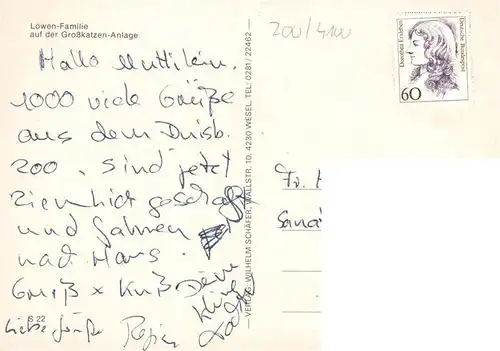 Löwen-Familie
auf der Großkatzen-Anlage
200/4100
Hallo Muttilein.
1000 viele Grüße
aus dem Duisb.
Zoo. Sind jetzt
ziemlich geschafft
und fahren
nach Haus.
Gruß x Kuß Deine
kleine
Liebe Grüße
S 22
VERLAG: WILHELM SCHÄFER, WALLSTR. 10, 4230 WESEL, TEL. 0281/22462
Dorothea Erxleben
Deutsche Bundespost
60
Fr.